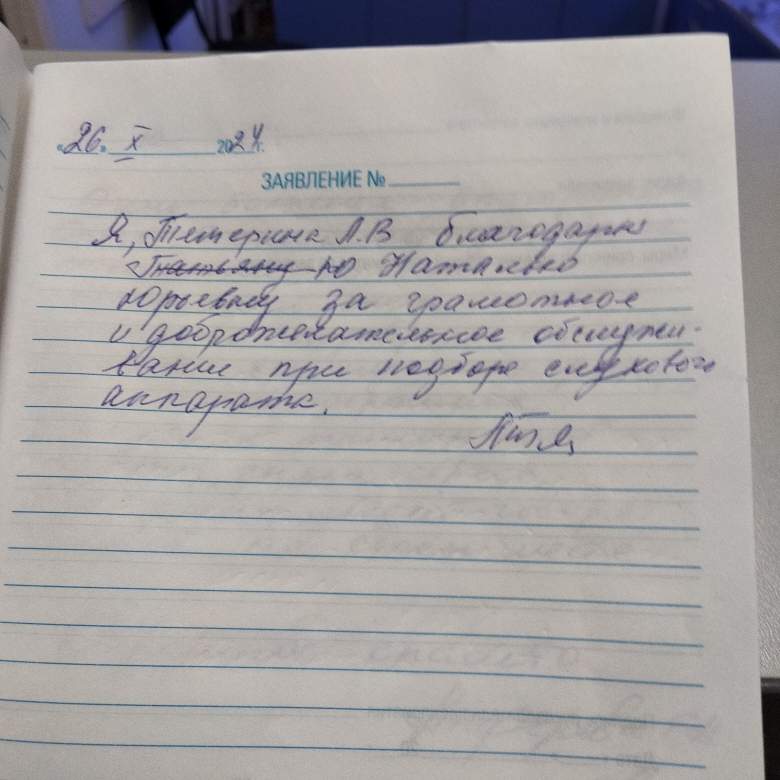 «26» X 2024г.
ЗАЯВЛЕНИЕ №
Я, Тетерина Л.В благодарю
Татьяну Ю Наталью
Юрьевну за грамотное
и доброжелательное обслужи-
вание при подборе слухового
аппарата.